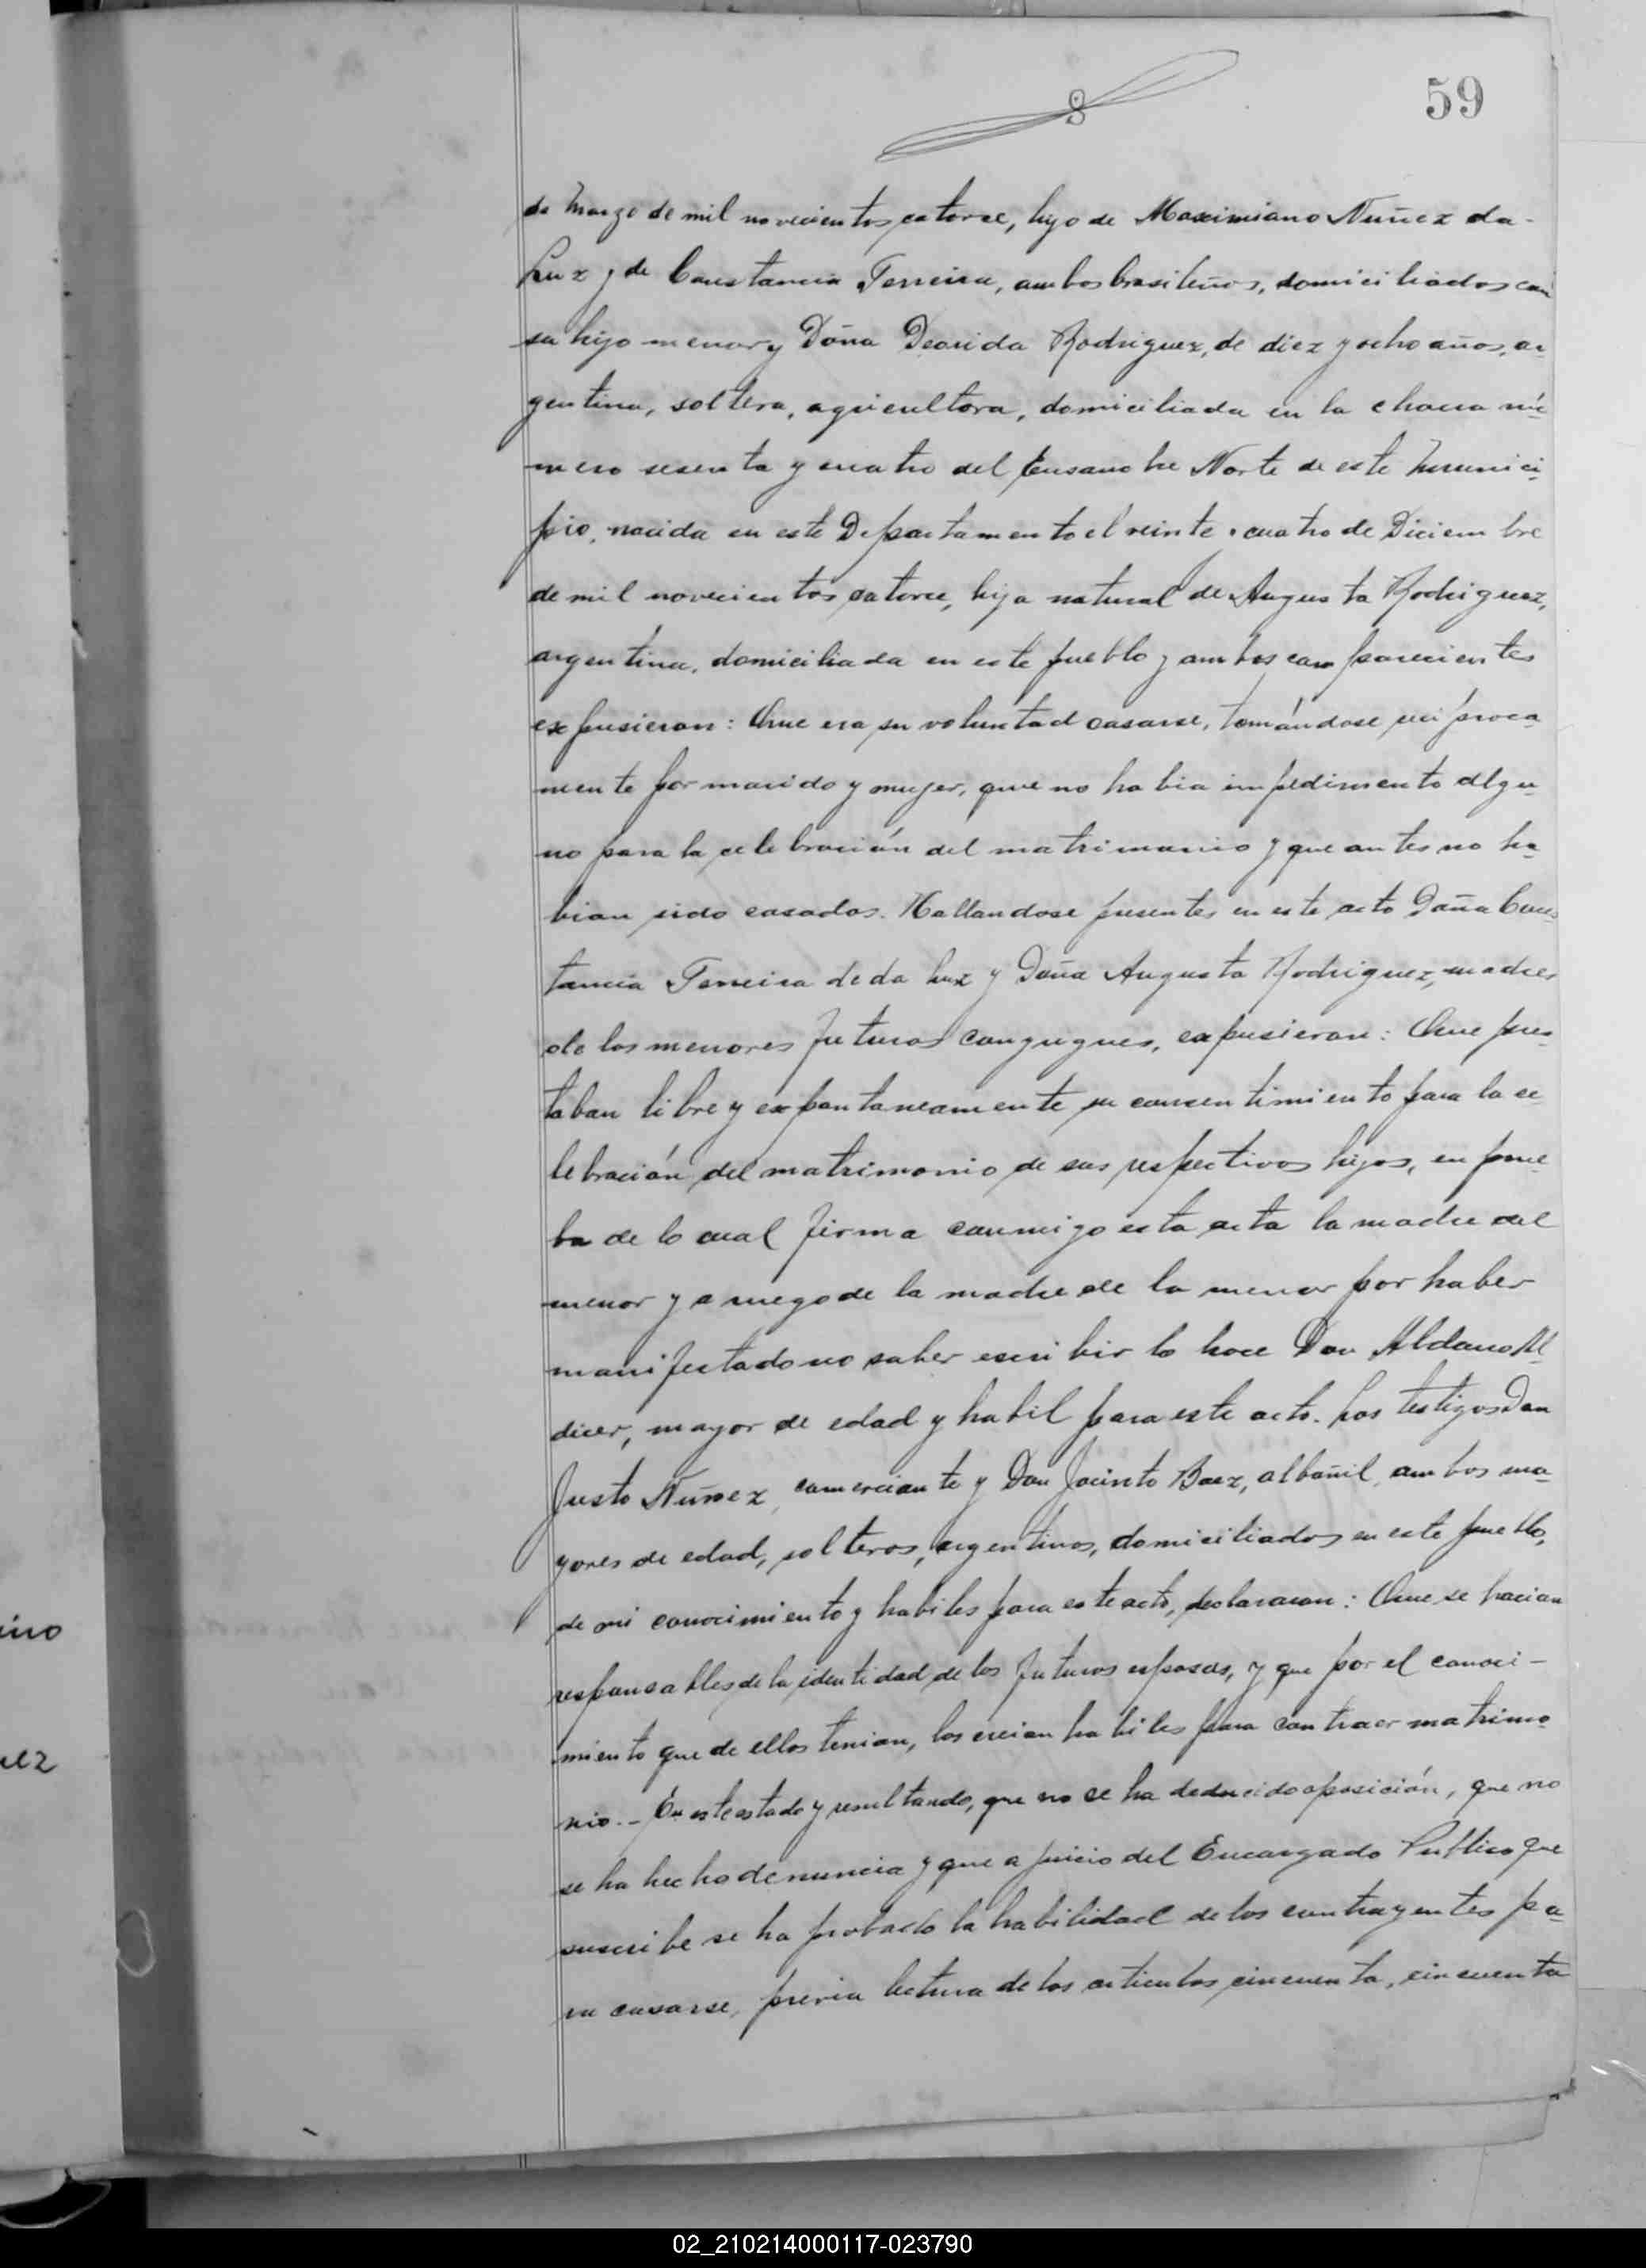 59
8
de Marzo de mil novecientos catorce, hijo de Maximiano Nuñez da-
Luz y de Constancia Ferreira, ambos brasileños, domiciliados con
su hijo menor y Doña Deorida Rodriguez, de diez y ocho años, ar
gentina, soltera, agricultora, domiciliada en la chacra nú
mero sesenta y cuatro del Ensanche Norte de este Munici
pio, nacida en este Departamento el veinte y cuatro de Diciembre
de mil novecientos catorce, hija natural de Augusta Rodriguez,
argentina, domiciliada en este pueblo y ambos comparecientes
expusieron: Que era su voluntad casarse, tomándose recíproca
mente por marido y mujer, que no habia impedimento algu
no para la celebración del matrimonio y que antes no ha
bian sido casados. Hallandose presentes en este acto Doña Cons
tancia Ferreira de da Luz y Doña Augusta Rodriguez, madres
de los menores futuros conyugues, expusieron: Que pres
taban libre y expontaneamente su consentimiento para la ce
lebración del matrimonio de sus respectivos hijos, en prue
ba de lo cual firma conmigo esta acta la madre del
menor y a ruego de la madre de la menor por haber
manifestado no saber escribir lo hace Don Aldano
dicer, mayor de edad y habil para este acto. Los testigos Don
Justo Nuñez, comerciante y Don Jacinto Baez, albañil, ambos ma
yores de edad, solteros, argentinos, domiciliados en este pueblo,
de mi conocimiento y habiles para este acto, declararon: Que se hacian
responsables de la identidad de los futuros esposos, y que por el conoci-
miento que de ellos tenian, los creian habiles para contraer matrimo
nio.- En este estado y resultando, que no se ha deducido oposición, que no
se ha hecho denuncia y que a juicio del Encargado Publico que
suscribe se ha probado la habilidad de los contrayentes pa
ra casarse, previa lectura de los articulos cincuenta, cincuenta
ino
uez
02_210214000117-023790